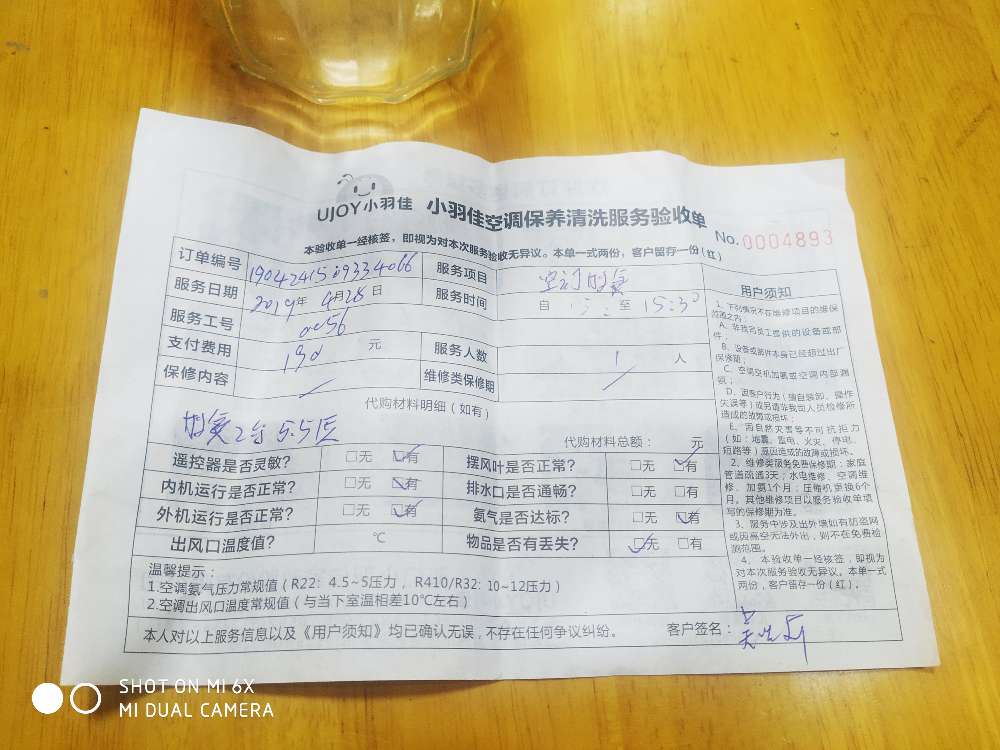 UJOY小羽佳 小羽佳空调保养清洗服务验收单
No. 0004893
本验收单一经核签，即视为对本次服务验收无异议。本单一式两份，客户留存一份(红)
订单编号 服务项目
服务日期 2019年 4月28日 服务时间 自 至 15:30
服务工号
支付费用 元 服务人数 1 人
保修内容 维修类保修期
代购材料明细（如有）
2台 5.5
代购材料总额： 元
遥控器是否灵敏？ □无 □有 摆风叶是否正常？ □无 □有
内机运行是否正常？ □无 □有 排水口是否通畅？ □无 □有
外机运行是否正常？ □无 □有 氨气是否达标？ □无 □有
出风口温度值？ ℃ 物品是否有丢失？ □无 □有
温馨提示：
1.空调氨气压力常规值（R22: 4.5~5压力，R410/R32: 10~12压力）
2.空调出风口温度常规值（与当下室温相差10℃左右）
本人对以上服务信息以及《用户须知》均已确认无误，不存在任何争议纠纷。 客户签名：
用户须知
1、下列情况不在维修项目的维保
范围之内：
A、非我司员工提供的设备或部
件；
B、设备或部件本身已经超出厂
保修期；
C、空调空机加氨或空调内部漏
氨；
D、因客户行为（擅自装卸、操作
失误等）或另请非我司人员检修所
造成的故障或损坏；
因自然灾害等不可抗拒力
（如：地震、雷电、火灾、停电、
短路等）原因造成的故障或损坏。
2、维修类服务免费保修期：家庭
管道疏通3天；水电维修、空调维
修、加氨1个月；压缩机更换6个
月。其他维修项目以服务验收单填
写的保修期为准。
3、服务中涉及出外墙如有防盗网
或因高空无法外出，则不在免费检
测范围。
4、本验收单一经核签，即视为
对本次服务验收无异议。本单一式
两份，客户留存一份（红）。
SHOT ON MI 6X
MI DUAL CAMERA